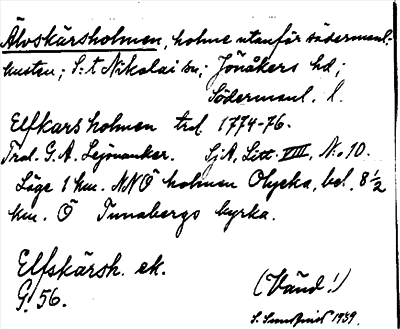 Älvskärsholmen, holme utanför södermanl.
kusten; S:t Nikolai sn; Jönåkers hd;
Södermanl. l.
Elfkarsholmen trol. 1774-76.
Trol. G. A. Lejonanker. SjA, Litt. VIII, N:o 10.
Läge 1 km. NNÖ holmen Olycka, bel. 8 1/2
km. Ö Tunabergs kyrka.
Elfskärsh. ek.
G! 56.
(Vänd!)
1939.